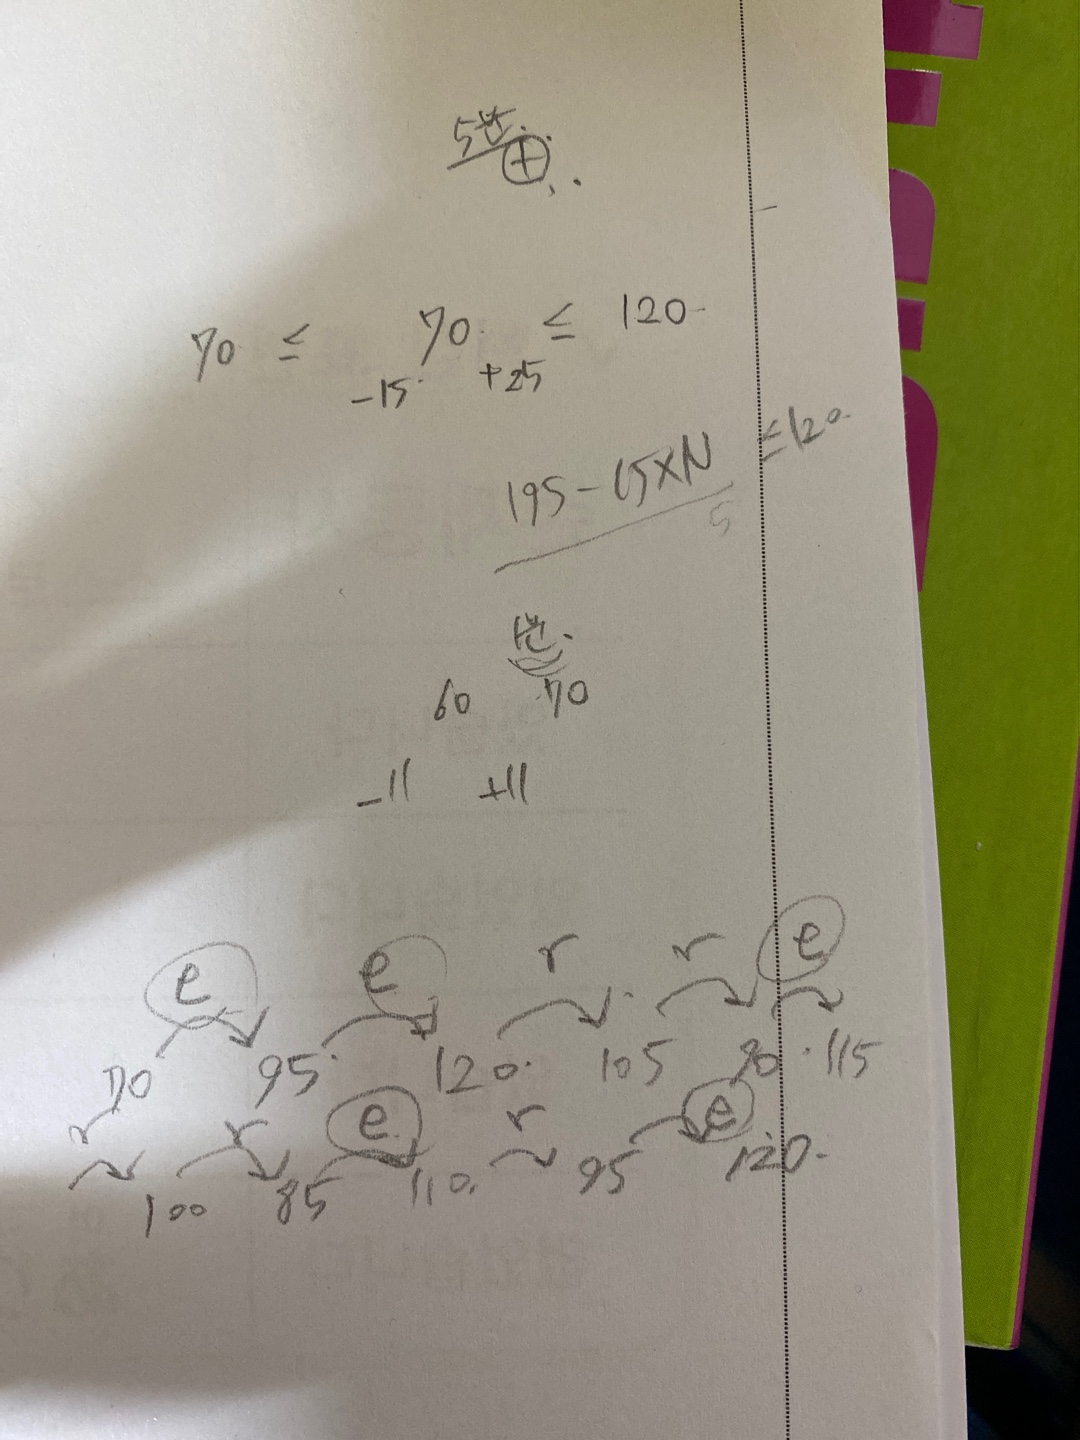 5분
+
70 ≤ 70 ≤ 120
-15 +25
195-15×N ≤120
5
1분.
60 70
-11 +11
e e r r e
70 95 120. 105 90 115
r r e r e
100 85 110. 95 120.